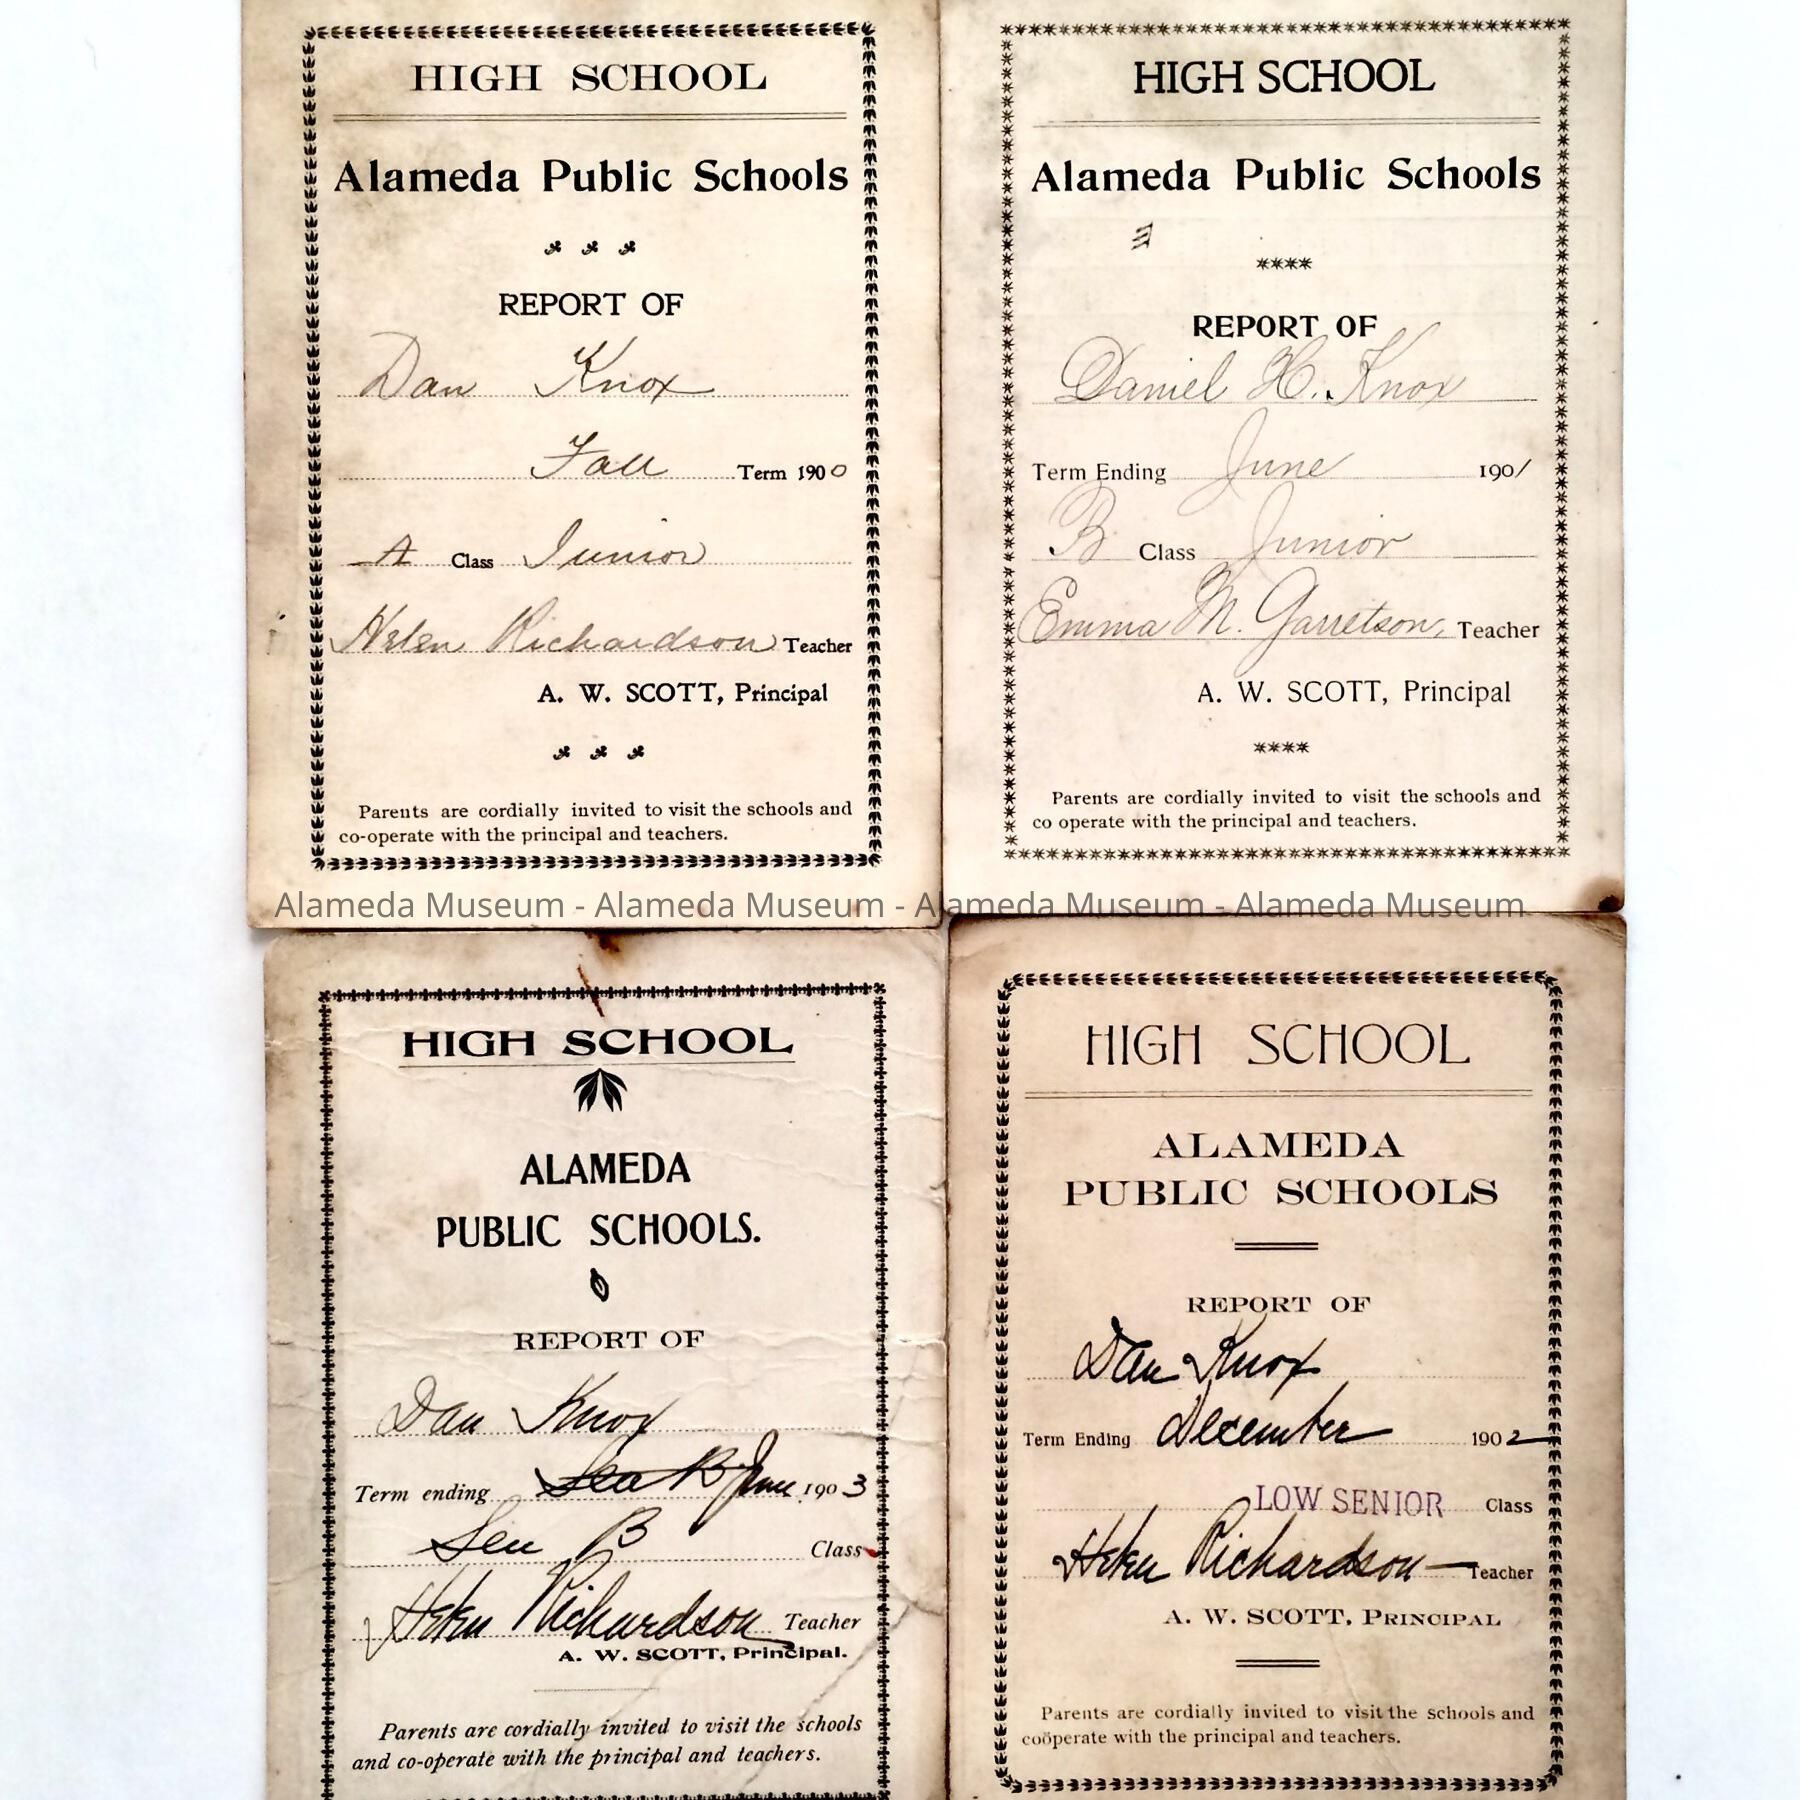 HIGH SCHOOL
Alameda Public Schools
REPORT OF
Dan Knox
Fall Term 1900
A Class Junior
Helen Richardson Teacher
A. W. SCOTT, Principal
Parents are cordially invited to visit the schools and
co-operate with the principal and teachers.
HIGH SCHOOL
Alameda Public Schools
REPORT OF
Daniel H. Knox
Term Ending June 1901
B Class Junior
Emma M. Garretson, Teacher
A. W. SCOTT, Principal
Parents are cordially invited to visit the schools and
co operate with the principal and teachers.
Alameda Museum - Alameda Museum - Alameda Museum - Alameda Museum
HIGH SCHOOL
ALAMEDA
PUBLIC SCHOOLS.
REPORT OF
Dan Knox
Term ending June 1903
Sen B Class
Helen Richardson Teacher
A. W. SCOTT, Principal.
Parents are cordially invited to visit the schools
and co-operate with the principal and teachers.
HIGH SCHOOL
ALAMEDA
PUBLIC SCHOOLS
REPORT OF
Dan Knox
Term Ending December 1902
LOW SENIOR Class
Helen Richardson Teacher
A. W. SCOTT, PRINCIPAL
Parents are cordially invited to visit the schools and
coöperate with the principal and teachers.